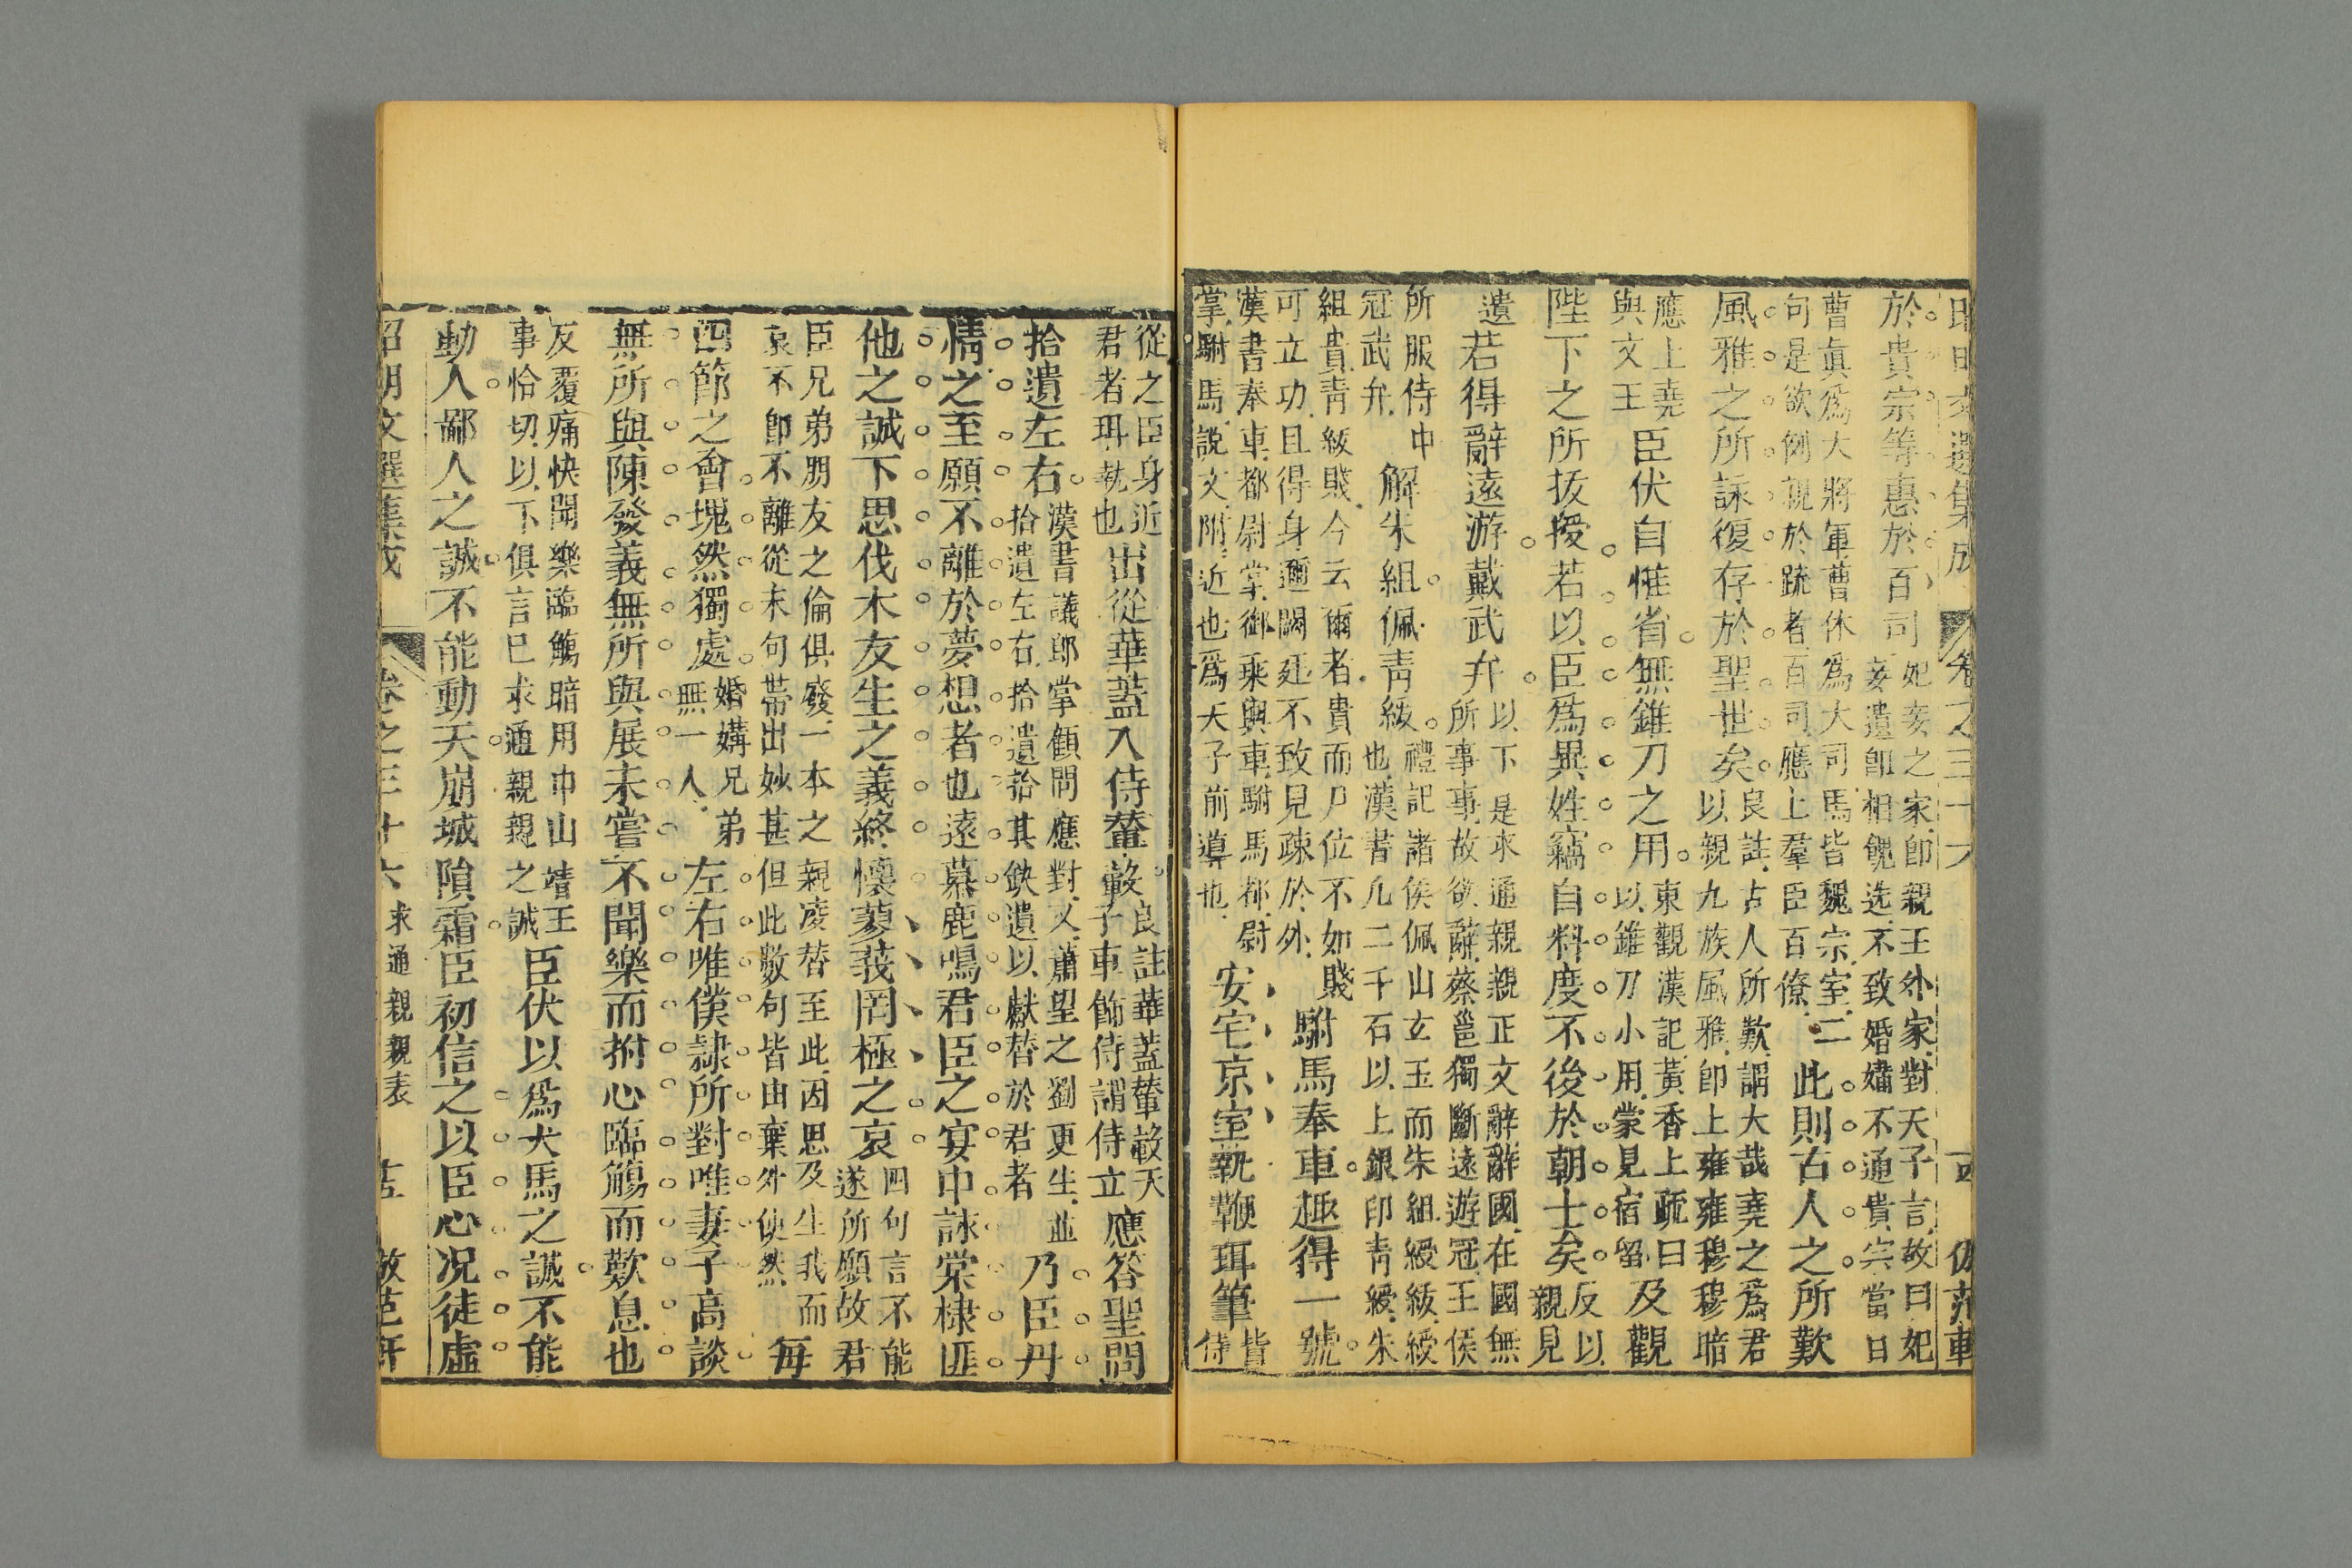 昭明文選集成 卷之三十六
於貴宗等惠於百司妃妾之家卽親王外家對天子言故曰妃
妾遺卽相餽送不致婚媾不通貴宗當日
曹眞爲大將軍曹休爲大司馬皆魏宗室二
句是欲例親於疏者百司應上羣臣百僚此則古人之所歎
風雅之所詠復存於聖世矣良註古人所歎謂大哉堯之爲君
以親九族風雅卽上雍雍穆穆暗
應上堯
與文王臣伏自惟省無錐刀之用東觀漢記黃香上疏曰
以錐刀小用蒙見宿留及觀
陛下之所拔授若以臣爲異姓竊自料度不後於朝士矣反以
親見
遺若得辭遠游戴武弁以下是求通親親正文辭辭國在國無
所事事故欲辭蔡邕獨斷遠遊冠王侯
所服侍中
冠武弁解朱組佩青紱禮記諸侯佩山玄玉而朱組綬紱綬
也漢書凡二千石以上銀印青綬朱
組貴青紱賤今云爾者貴而尸位不如賤
可立功且得身邇闕廷不致見疎於外駙馬奉車趣得一號
漢書奉車都尉掌御乘輿車駙馬都尉
掌駙馬說文附近也爲天子前導也安宅京室執鞭珥筆皆
侍
從之臣身近
君者珥執也出從華蓋入侍輦轂良註華蓋輦轂天
子車飾侍謂侍立應答聖問
拾遺左右漢書議郎掌顧問應對又蕭望之劉更生並
拾遺左右拾遺拾其缺遺以獻替於君者乃臣丹
情之至願不離於夢想者也遠慕鹿鳴君臣之宴中詠棠棣匪
他之誠下思伐木友生之義終懷蓼莪罔極之哀四句言不能
遂所願故君
臣兄弟朋友之倫俱廢一本之親凌替至此因思及生我而
哀不卽不離從末句帶出妙甚但此數句皆由棄外使然每
四節之會塊然獨處婚媾兄弟
無一人左右唯僕隸所對唯妻子高談
無所與陳發義無所與展未嘗不聞樂而拊心臨觴而歎息也
友覆痛快聞樂臨觴暗用中山靖王
事恰切以下俱言己求通親親之誠臣伏以爲犬馬之誠不能
動人鄙人之誠不能動天崩城隕霜臣初信之以臣心况徒虛
昭明文選集成 卷之三十六 求通親親表